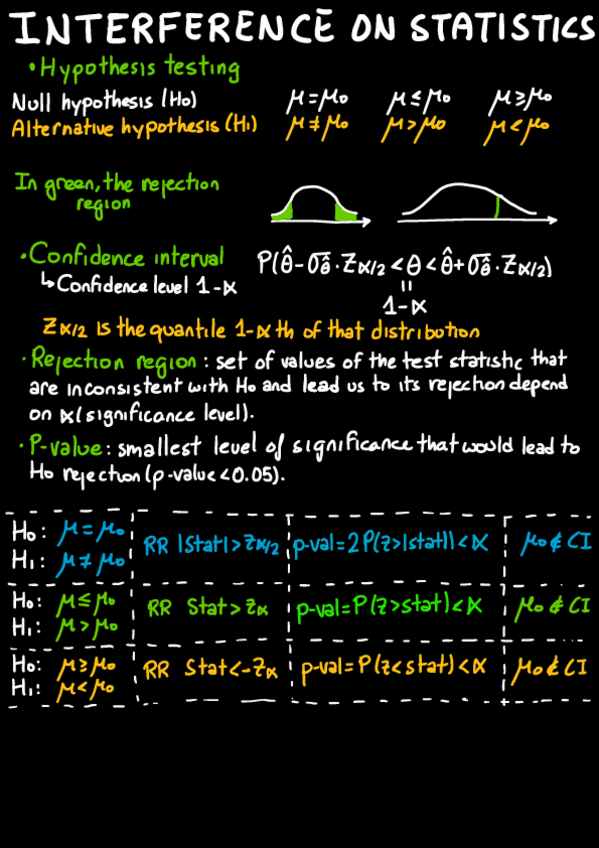 INTERFERENCE ON STATISTICS
• Hypothesis testing
Null hypothesis (H₀) μ=μ₀ μ≤μ₀ μ≥μ₀
Alternative hypothesis (H₁) μ≠μ₀ μ>μ₀ μ<μ₀
In green, the rejection
region
• Confidence interval P(θ̂-σ_θ̂·Z_α/2<θ<θ̂+σ_θ̂·Z_α/2)
↳ Confidence level 1-α
=
1-α
Z_α/2 is the quantile 1-α th of that distribution
• Rejection region: set of values of the test statistic that
are inconsistent with H₀ and lead us to its rejection depend
on α (significance level).
• P-value: smallest level of significance that would lead to
H₀ rejection (p-value<0.05).
H₀: μ=μ₀
H₁: μ≠μ₀
RR |Stat|>Z_α/2
p-val=2P(z>|stat|)<α
μ₀∉CI
H₀: μ≤μ₀
H₁: μ>μ₀
RR Stat>Z_α
p-val=P(z>stat)<α
μ₀∉CI
H₀: μ≥μ₀
H₁: μ<μ₀
RR Stat<-Z_α
p-val=P(z<stat)<α
μ₀∉CI